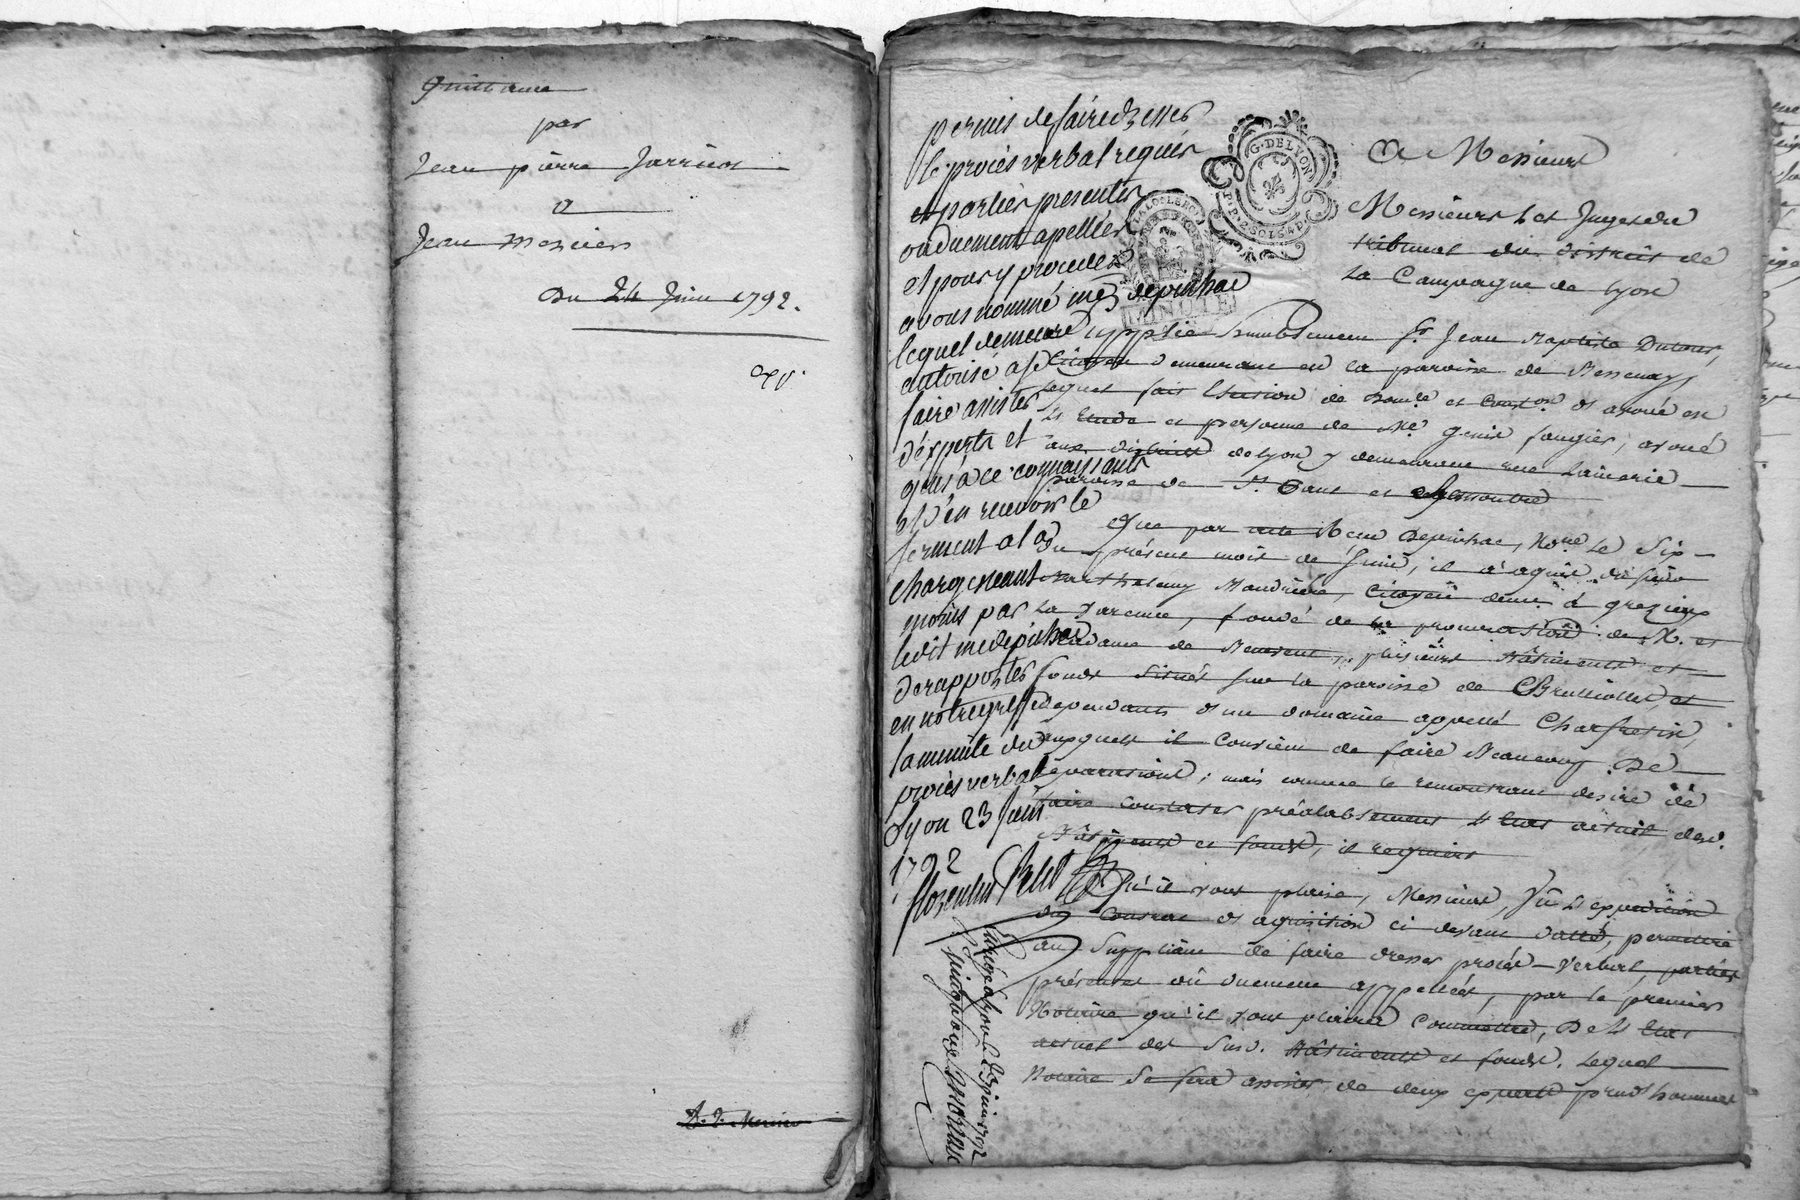 Quittance
par
Jean pierre Jarricot
a
Jean Mercier
Du 24 Juin 1792.
permis de faire dresser
le procès verbal requis
parties presentes
ou duement apellées
et pour y proceder
avons nommé me depinhac
lequel demeure
autorisé a se
faire assister
d'experts et
gens à ce connaissants
et d'en recevoir le
serment a la
charge neant
moins par
ledit me depinhac
de rapporter
en notre greffe
la minute du
procès verbal
Lyon 23 juin
1792
florentin Petit
G. DE LYON
2 SOLS 4 D.
LA LOI LE ROI
MINUTE
A Messieurs
Messieurs les Juges du
tribunal du District de
la Campagne de Lyon
Supplie humblement Sr. Jean Baptiste Dutour,
Citoyen demeurant en la paroisse de Bessenay,
lequel fait Election de Domle. et Conston. d'avoué en
L'Etude et personne de Me. genis faugier, avoué
aux District de Lyon y demeurant rue Lainerie
paroisse de St. Paul et Remontre
Que par acte Reçu Depinhac, Nore. le Six
du présent mois de Juin, il a aquit du sieur
Barthelemy Baudrier, Citoyen demt. à grezieux
La Varenne, fondé de la procuration de M. et
Madame de, plusieurs Bâtiments et
fonds Situés sur la paroisse de Brullioles, et
dependants d'un domaine appellé Charfretin,
auxquels il Convient de faire Beaucoup De
reparations; mais comme le remontrant desire de
faire constater préalablement L'Etat actuel desd.
Bâtiments et fonds, il requiert
Qu'il vous plaise, Messieurs, Vû L'expedition
du Contrat d'aquisition ci devant datté, permettre
au Suppliant de faire dresser procès-verbal, parties
présentes où duement appellées, par le premier
Notaire qu'il vous plaira Commettre, De L'Etat
actuel des Susd. Bâtiments et fonds, Lequel
Notaire Se fera assister de deux experts prud'hommes
Enregé a Lyon le 23 juin 1792